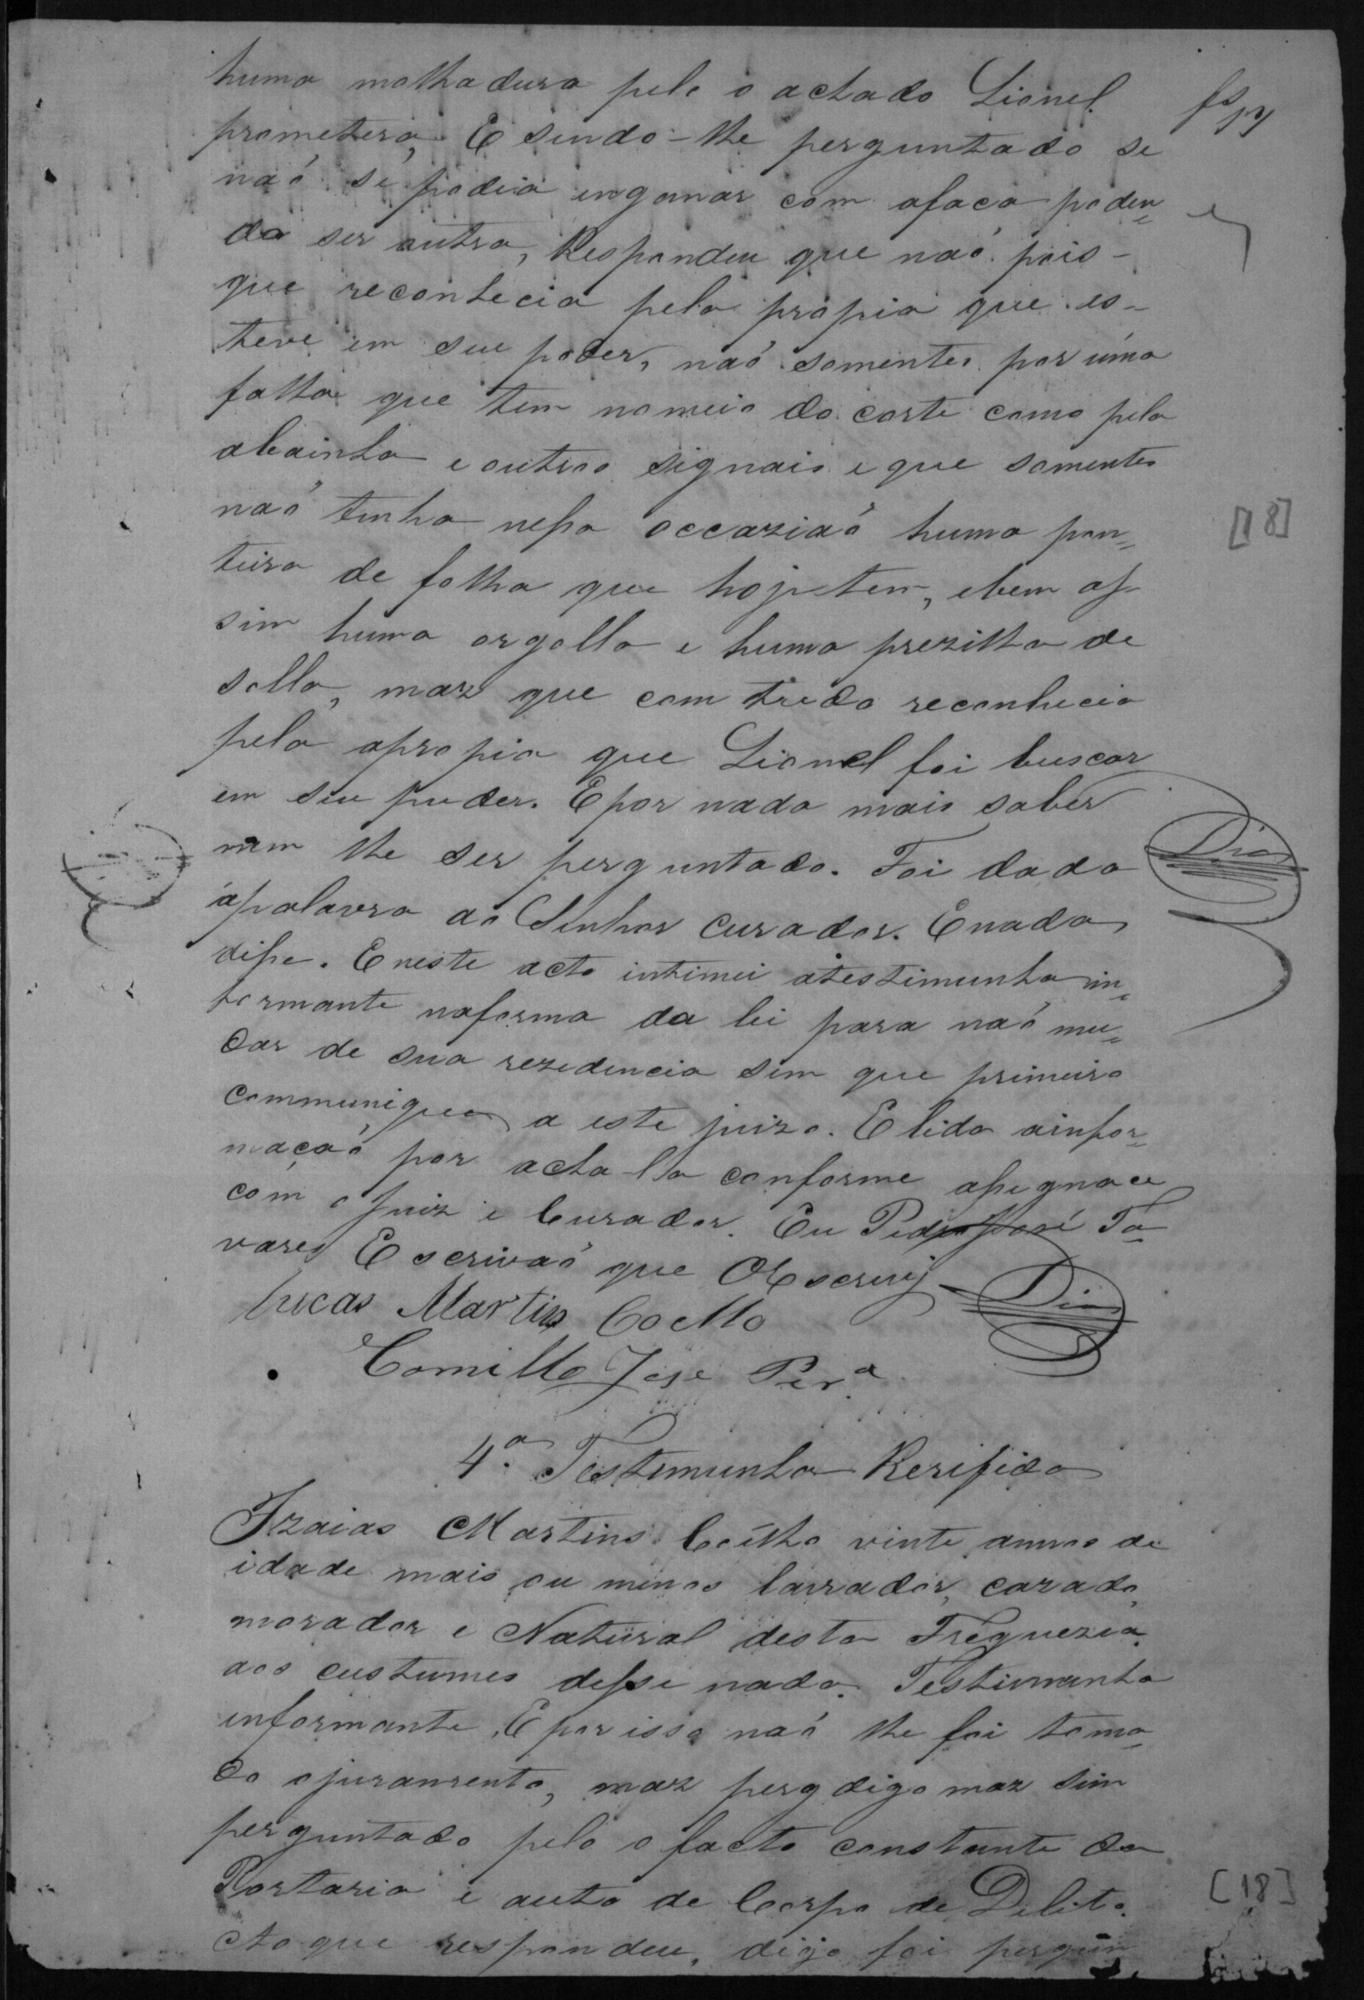 huma molhadura pelo o achado Lionel
prometera, E sendo-lhe perguntado se
naó se podia inganar com afaca poden=
do ser outra, Respondeu que naó pois-
que reconhecia pela propia que es-
teve em seu poder, naó somentes por úma
falha que tem nomeio do corte como pela
abainha e outros signais e que somentes
naó tinha nessa occaziaó huma pon=
teira de folha que hoje tem, ebem as-
sim huma argolla e huma prezilha de
solla, maz que com tudo reconhecia
pela apropia que Lionel foi buscar
em seu puder. Epor nada mais saber
nem lhe ser perguntado. Foi dada
ápalavra ao Senhor Curador. Enada
disse. Eneste acto intimei atestimunha in=
formante naforma da lei para naó mu=
dar de sua rezedencia sem que primeiro
communique a este juizo. E lida ainfor=
maçaó por acha-la conforme assignace
com o Juiz e Curador. Eu Pedro José Ta=
vares Escrivaó que OEscrevij
Dias
Lucas Martins Coelho
Camillo Jose Per.ª
4.ª Testemunha Rerifida
Izaias Martins Coélho vinte annos de
idade mais ou menos lavrador, cazado,
morador e Natural desta Freguezia
aos custumes disse nada. Testimunha
informante. Epor isso naó lhe foi toma=
do ojuramento, maz perg digo maz sim
perguntado pelo o facto constante da
Portaria e auto de Corpo de Delito.
Ao que respondeu, digo foi pergun
Dias
[18]
[18]